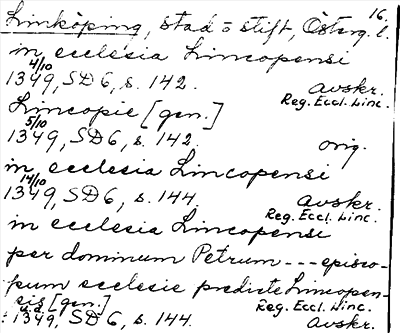 16.
Linköping, stad o stift, Österg. l.
in ecclesia Lincopensi
4/10
1349, SD6, s. 142. avskr.
Reg. Eccl. Linc.
Lincopie [gen.]
5/10
1349, SD6, s. 142. orig.
in ecclesia Lincopensi
14/10
1349, SD6, s. 144. avskr.
Reg. Eccl. Linc.
in ecclesia Lincopensi
per dominum Petrum --- episco-
pum ecclesie predicte Lincopen-
sis [gen.] Reg. Eccl. Linc.
u.d.
1349, SD6, s. 144. avskr.